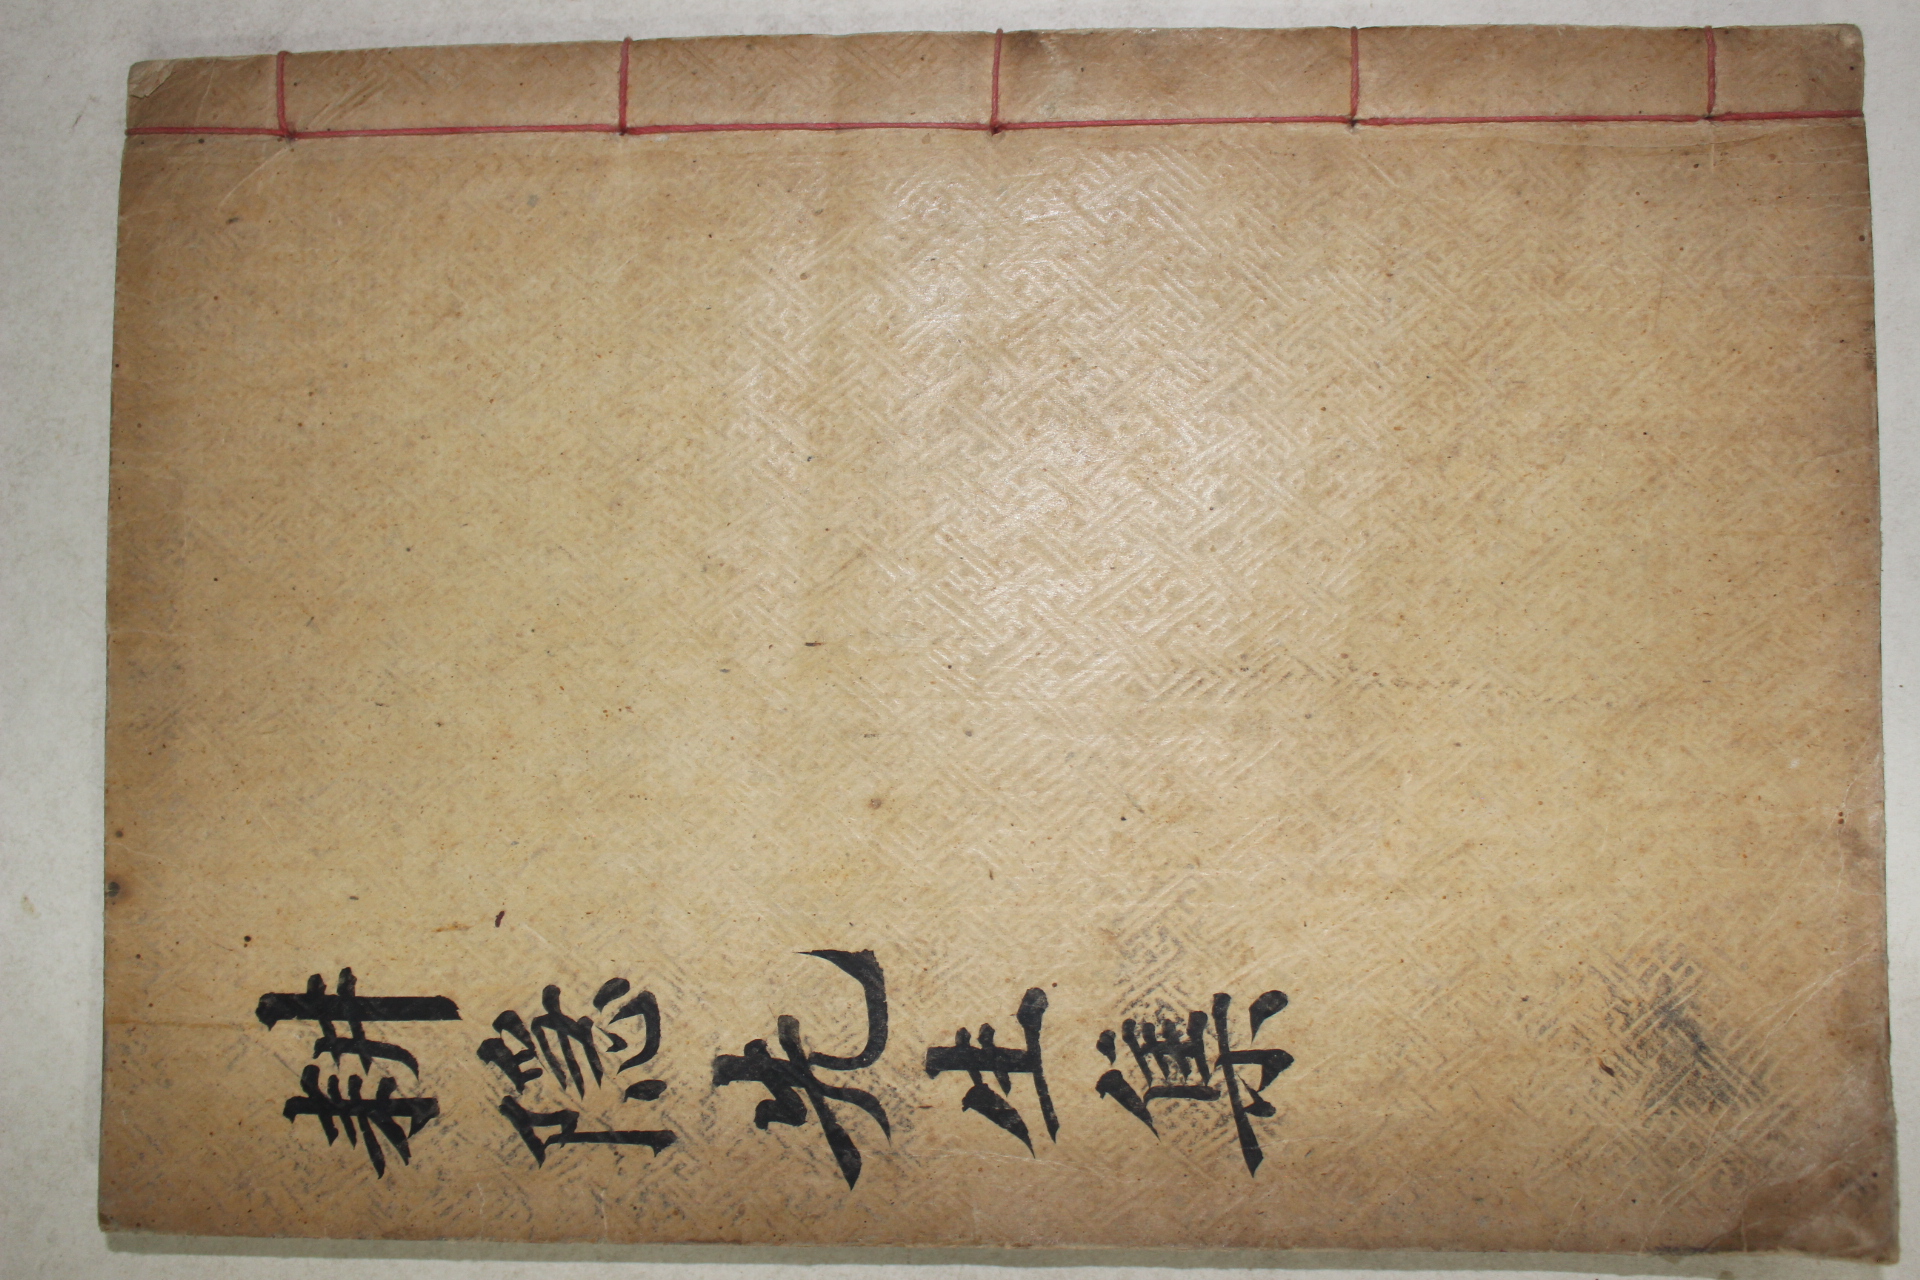 耕隱先生集